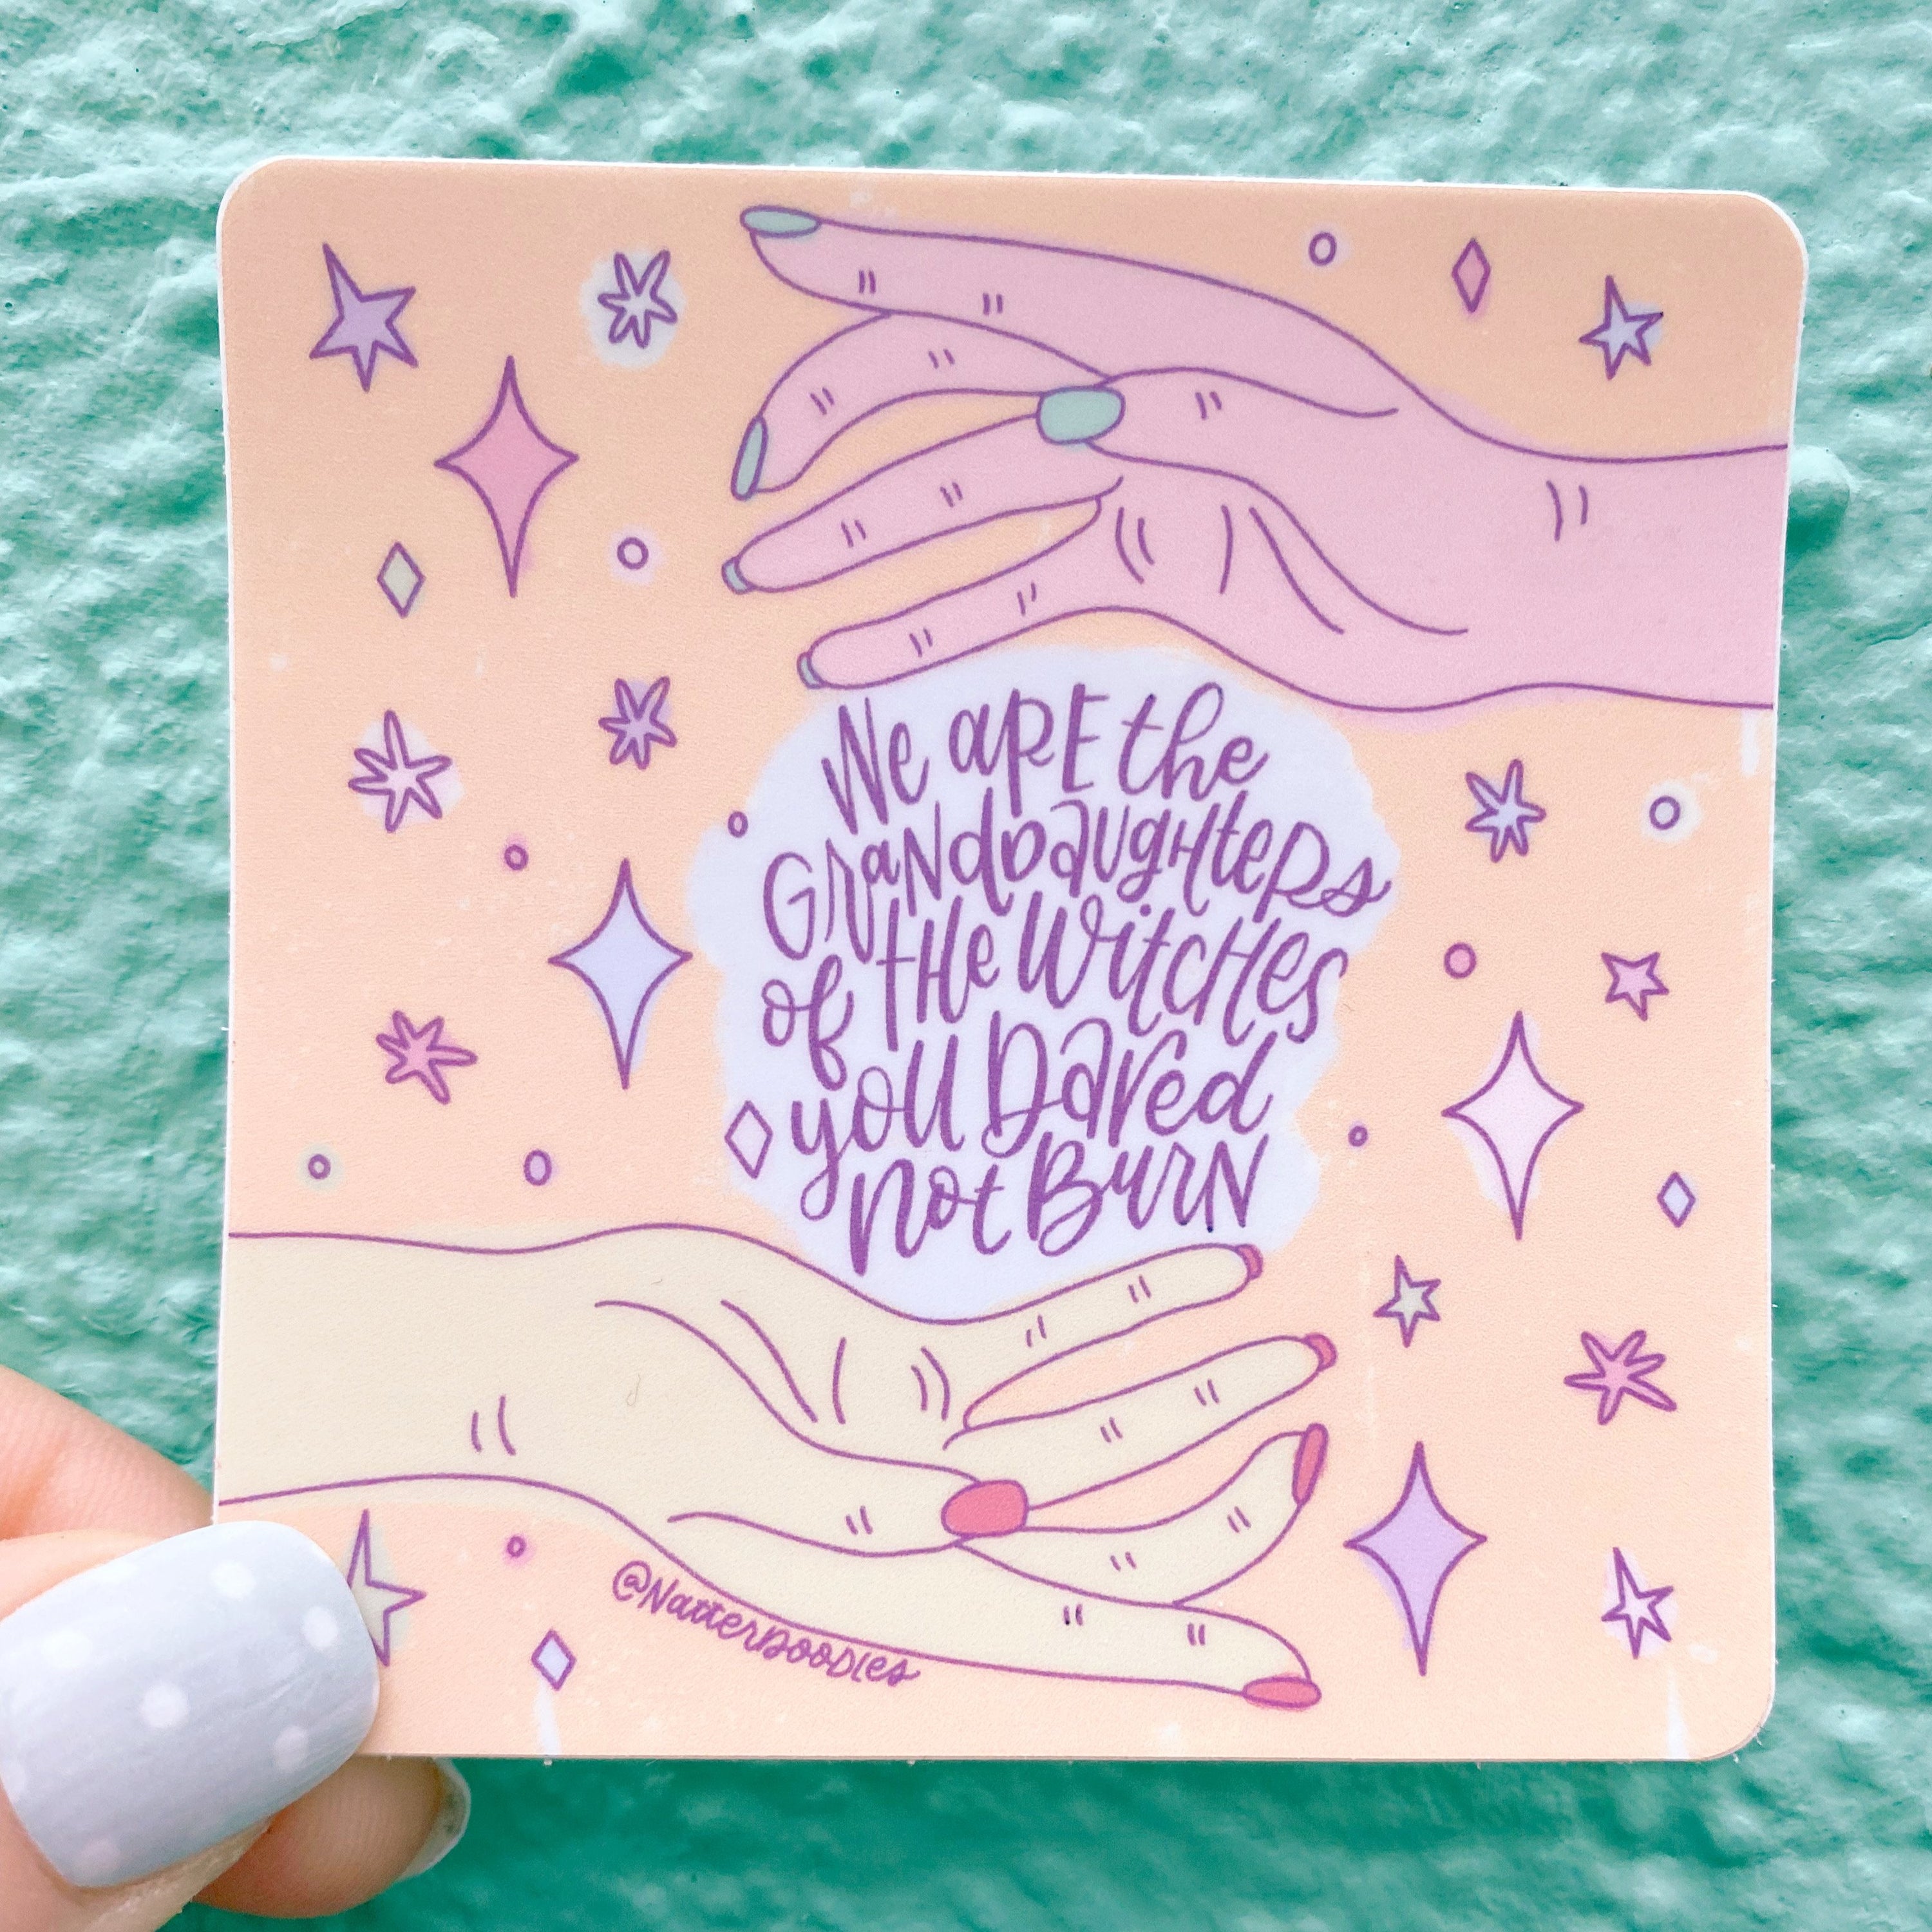 We are the
Granddaughters
of the Witches
you Dared
not Burn
@NatterDoodles